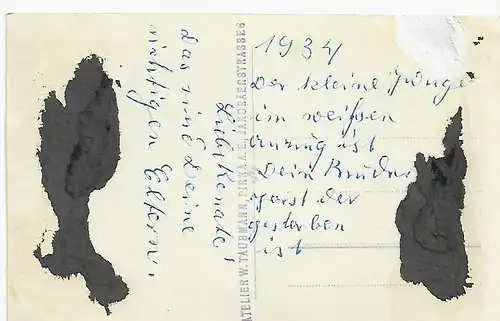 1934
Der kleine Junge
im weißen
Anzug ist
Dein Bruder
Horst der
gestorben
ist
Liebe Renate,
das sind Deine
richtigen Eltern.
ATELIER W. TAUBMANN, PIRNA A. E., JAKOBÄERSTRASSE 6